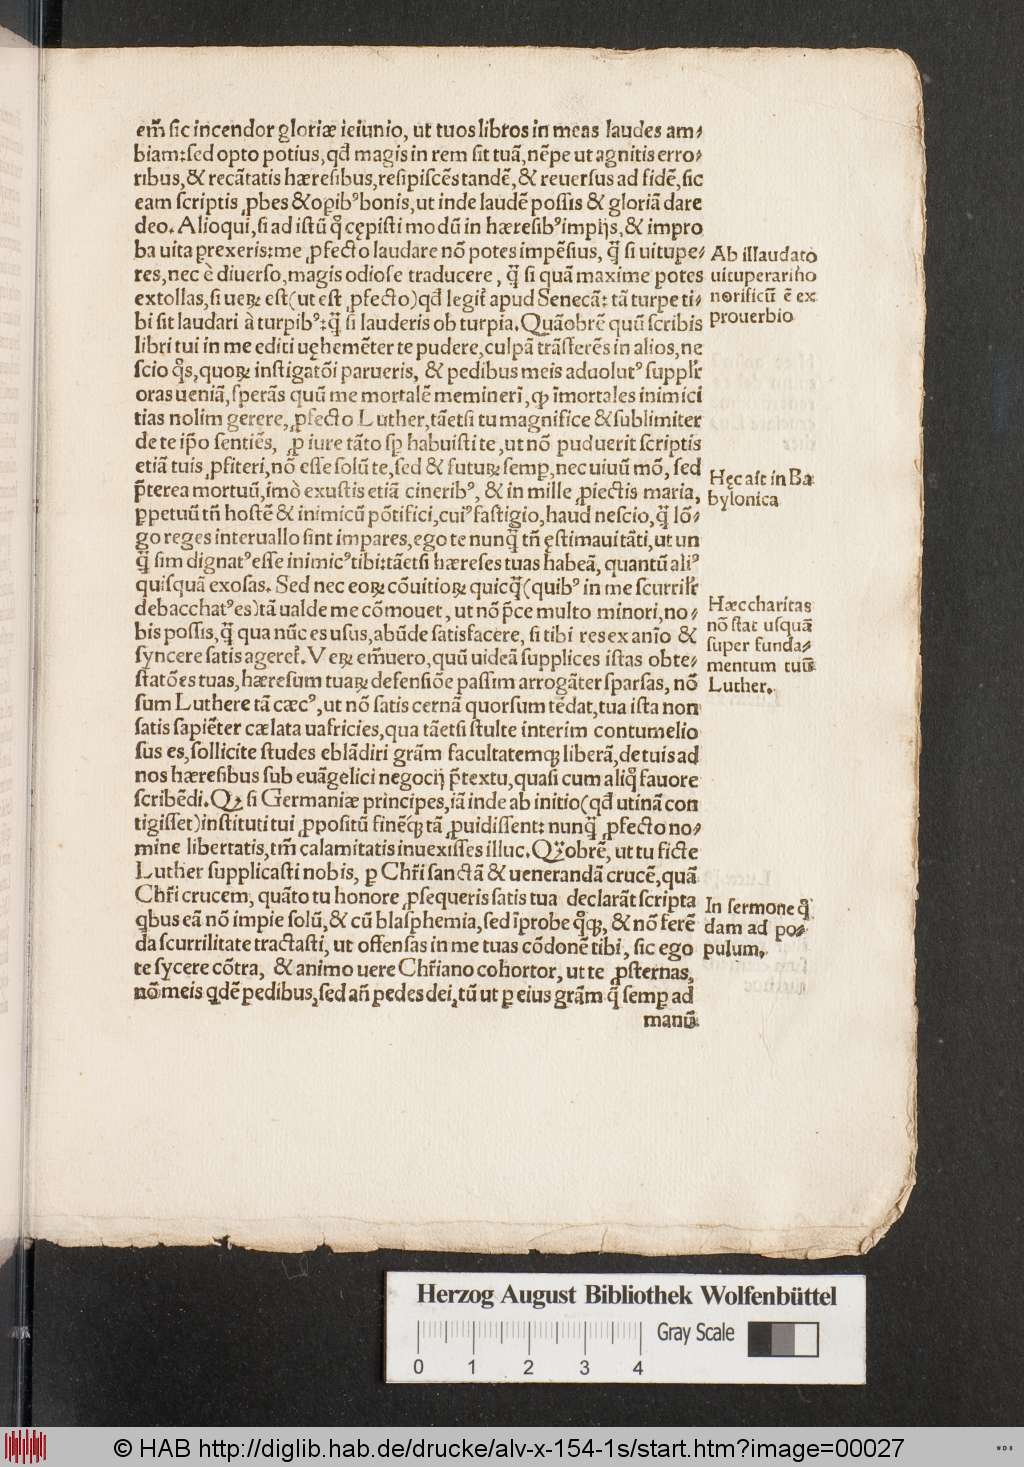 em̃ sic incendor gloriæ ieiunio, ut tuos libros in meas laudes am⸗
biam: sed opto potius, qđ magis in rem sit tuã, nẽpe ut agnitis erro⸗
ribus, & recãtatis hæresibus, resipiscẽs tandẽ, & reuersus ad fidẽ, sic
eam scriptis ꝓbes & oꝑibꝰ bonis, ut inde laudẽ possis & gloriã dare
deo. Alioqui, si ad istũ q̊ cępisti modũ in hæresibꝰ impijs, & impro
ba uita ꝑrexeris: me ꝓfecto laudare nõ potes impẽsius, q̃ si uitupe⸗
res, nec è diuerso, magis odiose traducere, q̃ si quã maxime potes
extollas, si ueꝝ est (ut est ꝓfecto) qđ legit̃ apud Senecã: tã turpe ti⸗
bi sit laudari à turpibꝰ: q̃ si lauderis ob turpia. Quãobrẽ quũ scribis
libri tui in me editi uęhemẽter te pudere, culpã trãsferẽs in alios, ne
scio q̊s, quoꝝ instigatõi parueris, & pedibus meis aduolutꝰ supplr̃
oras ueniã, sperãs quũ me mortalẽ meminerĩ, ꝙ ĩmortales inimici
tias nolim gerere, ꝓfecto Luther, tãetsi tu magnifice & sublimiter
de te ip̃o sentiẽs, ꝓ iure tãto sꝑ habuisti te, ut nõ puduerit scriptis
etiã tuis ꝓfiteri, nõ esse solũ te, sed & futuꝝ semꝑ, nec uiuũ mõ, sed
p̃terea mortuũ, imò exustis etiã cineribꝰ, & in mille ꝓiectis maria,
ꝑpetuũ tñ hostẽ & inimicũ põtifici, cuiꝰ fastigio, haud nescio, q̃ lõ⸗
go reges interuallo sint impares, ego te nunq̃ tñ ęstimaui tãti, ut un
q̃ sim dignatꝰ esse inimicꝰ tibi: tãetsi hæreses tuas habeã, quantũ aliꝰ
quisquã exosas. Sed nec eoꝝ cõuitioꝝ quicq̃ (quibꝰ in me scurrilr̃
debacchatꝰ es) tã ualde me cõmouet, ut nõ p̃ce multo minori, no⸗
bis possis, q̃ qua nũc es usus, abũde satisfacere, si tibi res ex anĩo &
syncere satisageret̃. Veꝝ em̃uero, quũ uideã supplices istas obte⸗
statões tuas, hæresum tuaꝝ defensiõe passim arrogãter sparsas, nõ
sum Luthere tã cæcꝰ, ut nõ satis cernã quorsum tẽdat, tua ista non
satis sapiẽter cælata uafricies, qua tãetsi stulte interim contumelio
sus es, sollicite studes eblãdiri grãm facultatemꝗ liberã, de tuis ad
nos hæresibus sub euãgelici negocij p̃textu, quasi cum aliq̊ fauore
scribẽdi. Qꝙ si Germaniæ principes, iã inde ab initio (qđ utinã con
tigisset) instituti tui ꝓpositũ finẽꝗ tã ꝓuidissent: nunq̃ ꝓfecto no⸗
mine libertatis, tm̃ calamitatis inuexisses illuc. Qꝛobrẽ, ut tu ficte
Luther supplicasti nobis, ꝑ Chr̃i sanctã & uenerandã crucẽ, quã
Chr̃i crucem, quãto tu honore ꝓsequeris satis tua declarãt scripta
ꝗbus eã nõ impie solũ, & cũ blasphemia, sed ĩprobe q̊ꝗ, & nõ ferẽ
da scurrilitate tractasti, ut offensas in me tuas cõdonẽ tibi, sic ego
te sycere cõtra, & animo uere Chr̃iano cohortor, ut te ꝓsternas,
nõ meis ꝗdẽ pedibus, sed añ pedes dei, tũ ut ꝑ eius grãm q̃ semꝑ ad
manũ
Ab illaudato
uituperari ho
norificũ ẽ ex
prouerbio
Hęc ast in Ba
bylonica
Hæc charitas
nõ stat usquã
super funda⸗
mentum tuũ
Luther.
In sermone q̊
dam ad po⸗
pulum.
Herzog August Bibliothek Wolfenbüttel
Gray Scale
0 1 2 3 4
© HAB http://diglib.hab.de/drucke/alv-x-154-1s/start.htm?image=00027